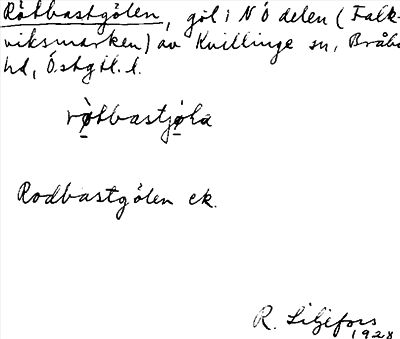 Rôtbastgölen, göl i NÖ delen (Falk-
viksmarken) av Kvillinge sn, Bråbo
hd, Östgtl. l.
rø̀tbastjøla
Rodbastgölen ek.
R. Liljefors
1928